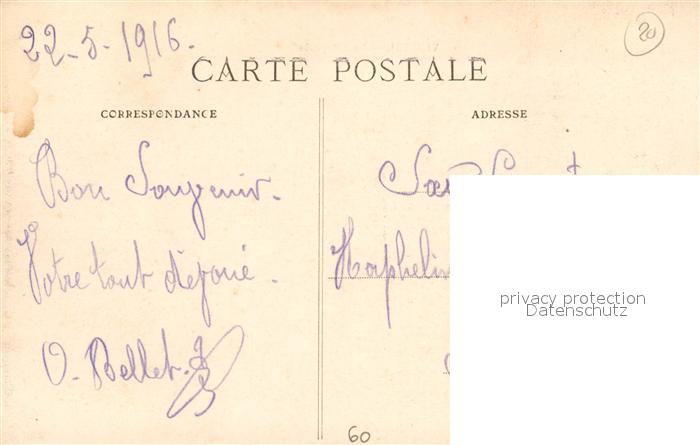 22-5-1916.
20
CARTE POSTALE
CORRESPONDANCE
ADRESSE
Bon Souvenir.
Votre tout dévoué.
O. Bellet.
privacy protection
Datenschutz
60